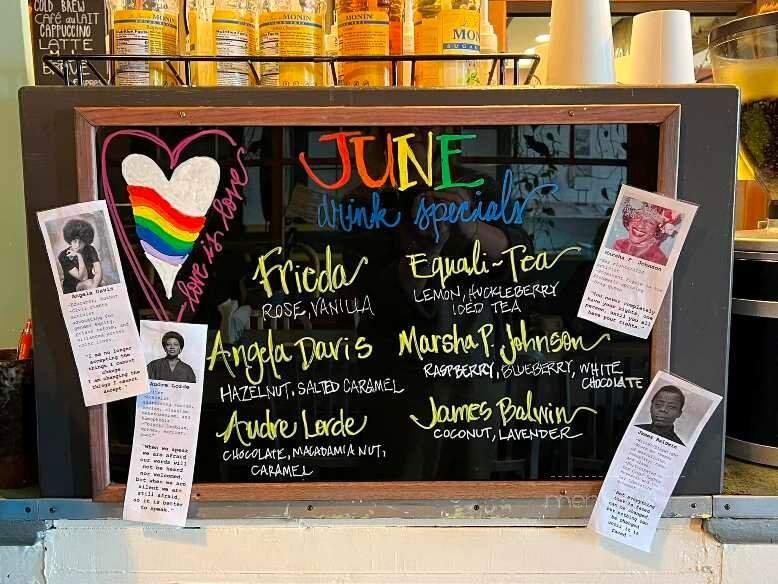 COLD BREW
CAFÉ au LAIT
CAPPUCCINO
LATTE
MONIN
MONIN
MONIN
JUNE
drink specials
love is love
Frieda
ROSE, VANILLA
Equali-Tea
LEMON, HUCKLEBERRY
ICED TEA
Angela Davis
HAZELNUT, SALTED CARAMEL
Marsha P. Johnson
RASPBERRY, BLUEBERRY, WHITE
CHOCOLATE
Audre Lorde
CHOCOLATE, MACADAMIA NUT,
CARAMEL
James Balwin
COCONUT, LAVENDER
Angela Davis
"I am no longer
accepting the
things I cannot
change.
I am changing the
things I cannot
accept."
Audre Lorde
"When we speak
we are afraid
our words will
not be heard
nor welcomed.
But when we are
silent we are
still afraid,
so it is better
to speak."
Marsha P. Johnson
"You never completely
have your rights, one
person, until you all
have your rights."
James Baldwin
Not everything
that is faced
can be changed,
but nothing can
be changed
until it is
faced.